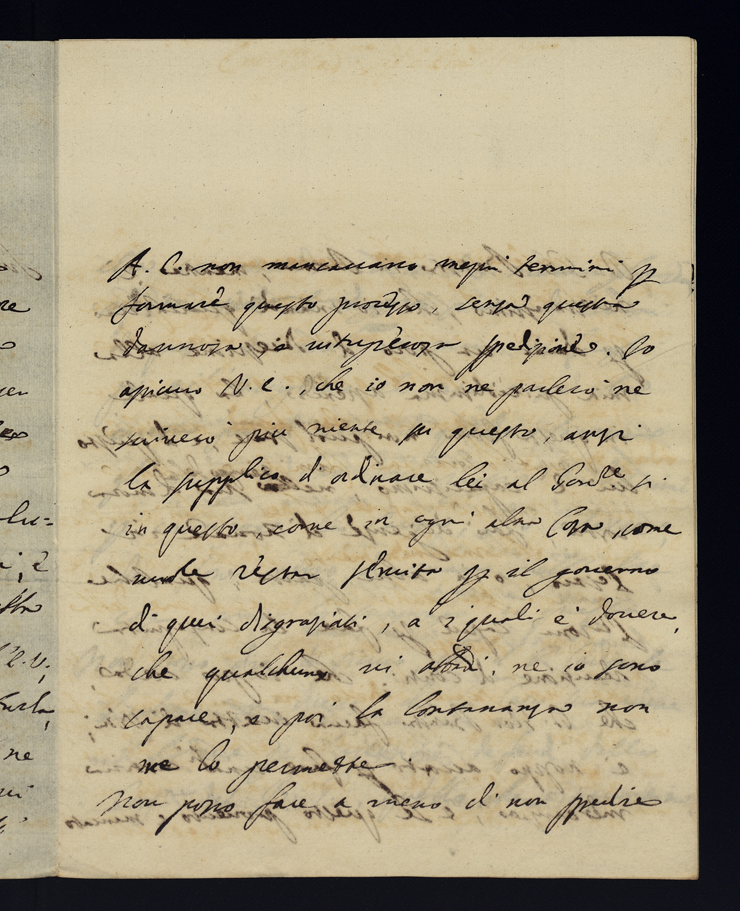 A. C. non mancavano mezzi termini p
formare questo processo, senza questa
dannosa e
spedizione. Io
V. E., che io non ne parlerò ne
scriverò più niente su questo, anzi
la supplico d'ordinare lei al si
in questo, come in ogni altra Cosa, come
vuole restar servita p il governo
di quei disgraziati, a i quali è dovere,
che qualchuno vi abbadi; ne io sono
capace, e poi la lontananza non
me lo permette.
Non posso fare a meno di non spedire
re
ne